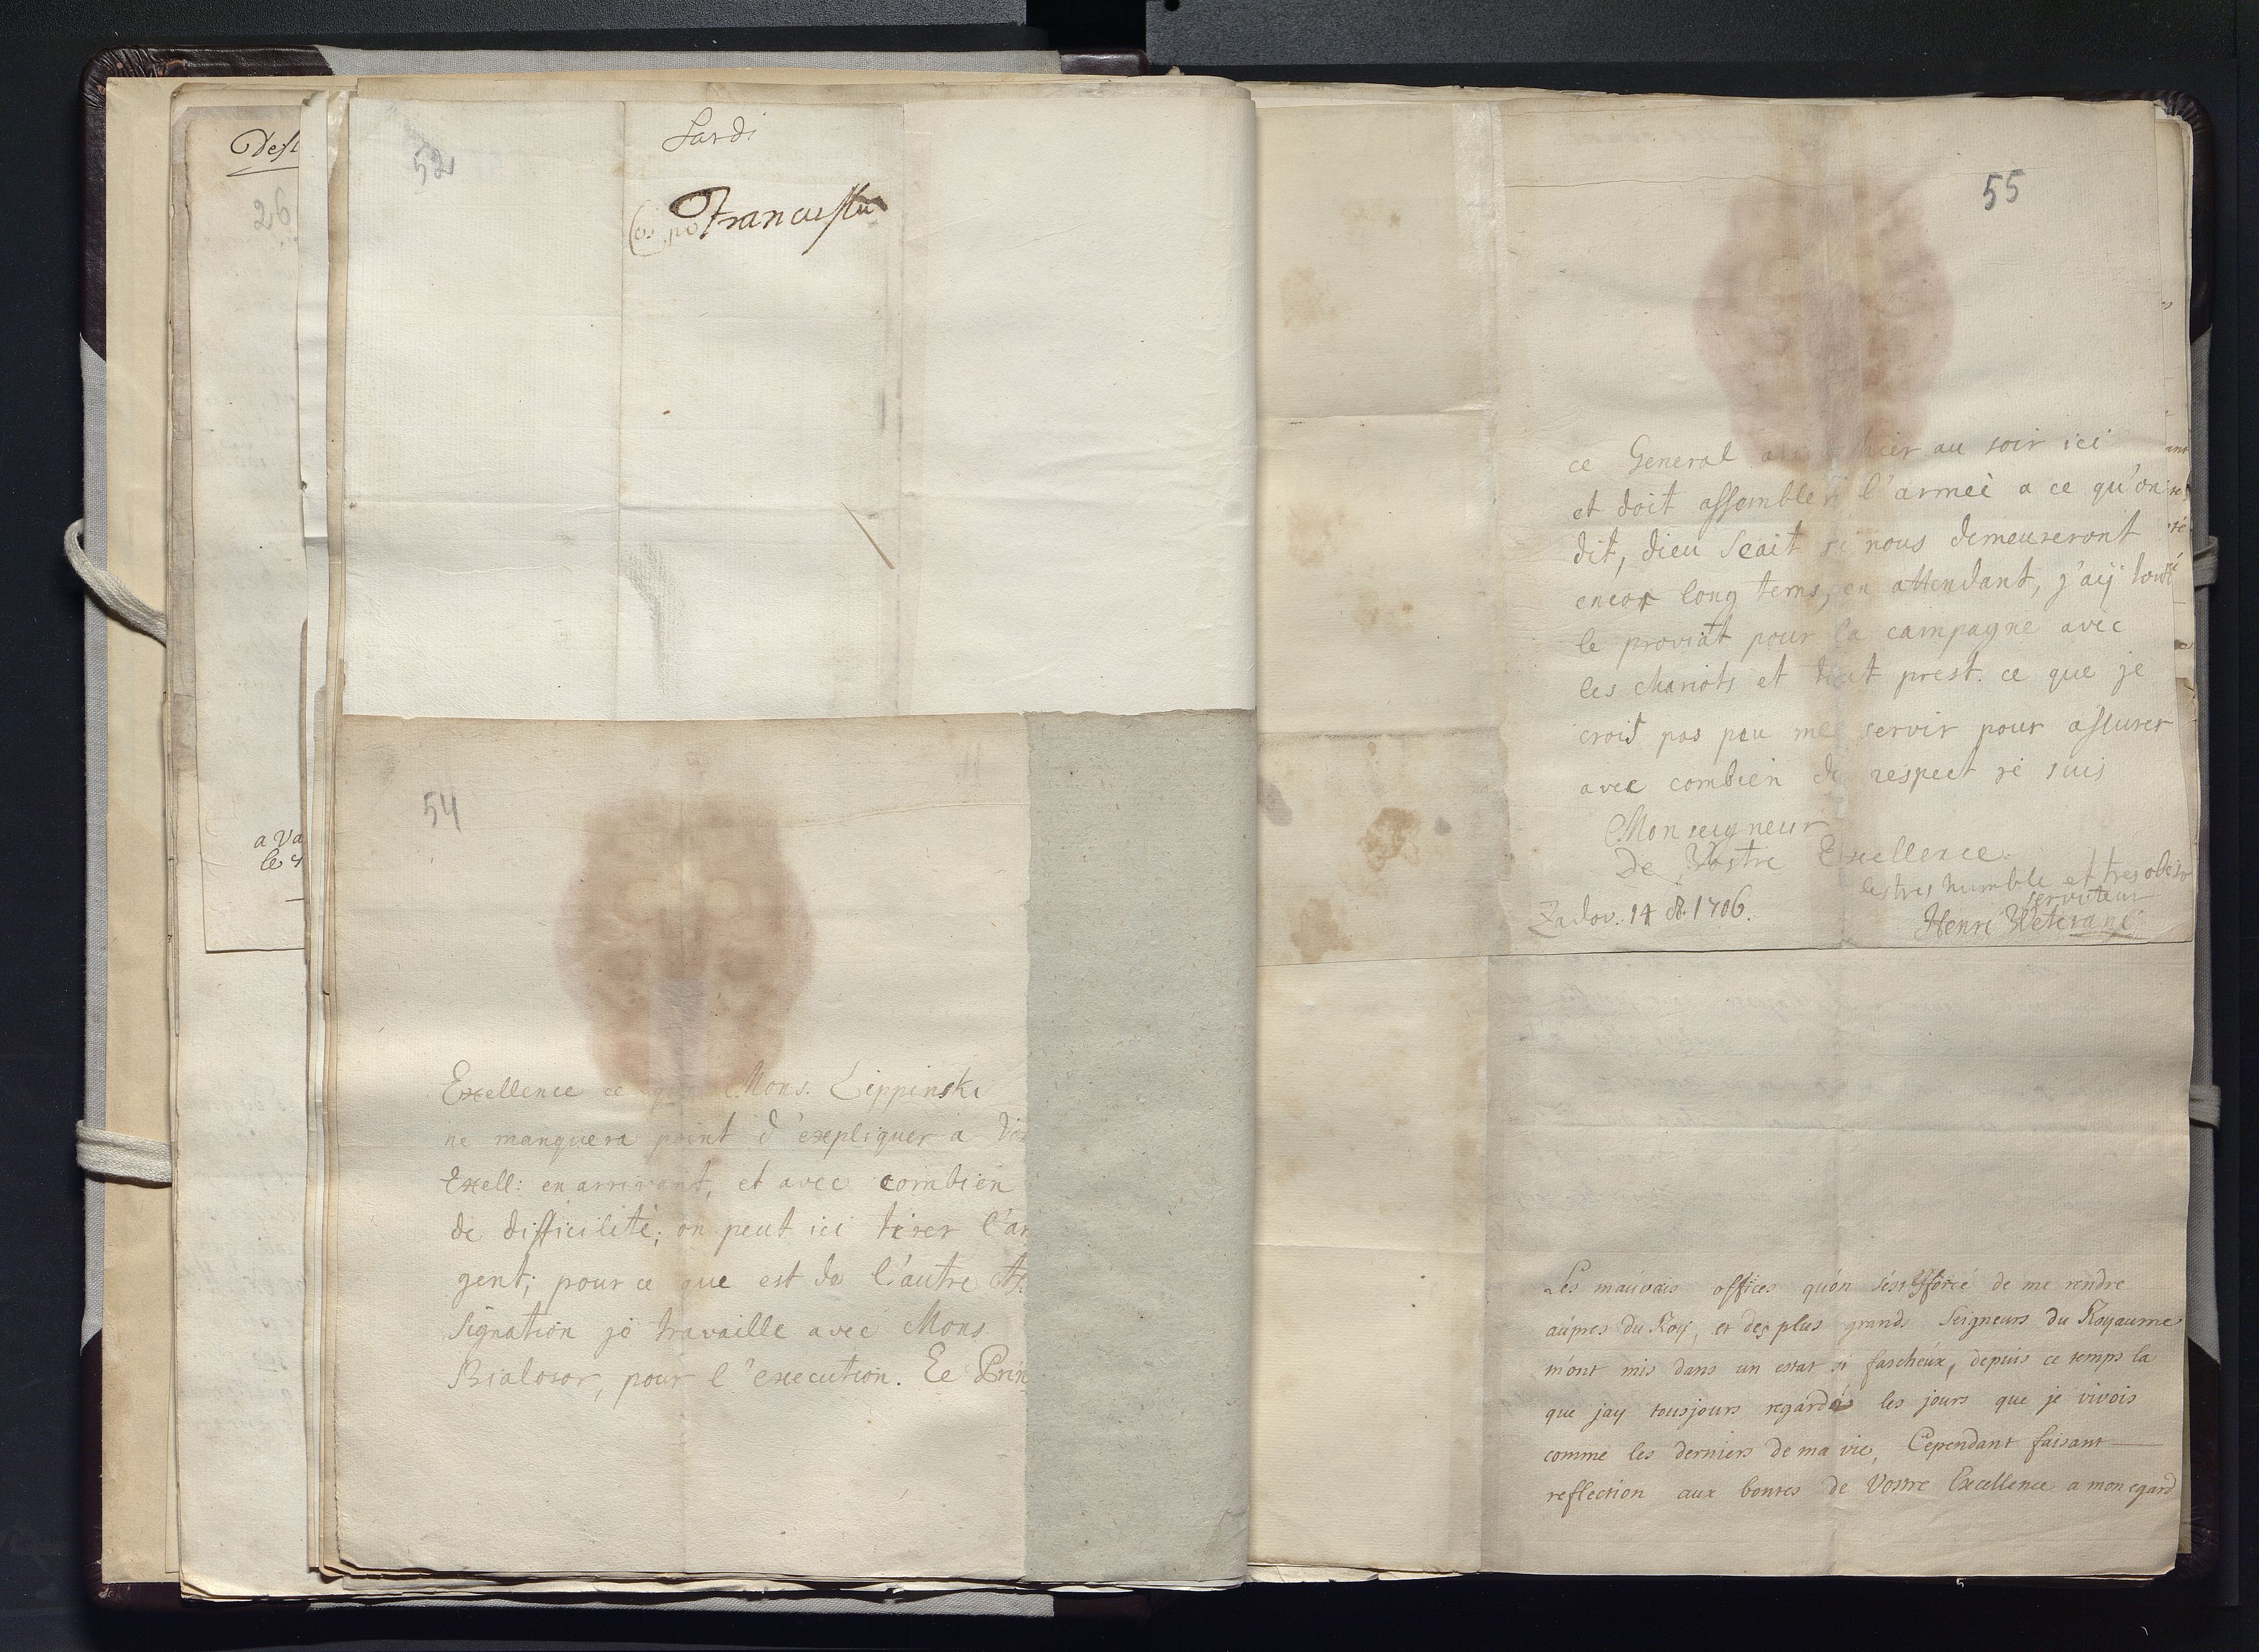 26
a Va
52
Sardi
54
Exellence ce que Mons. Lippinski
ne manquera point d'expliquer a Vo
Exell: en arrivant, et avec combien
de difficilité; on peut ici tirer l'ar
gent; pour ce que est de l'autre As
signation je travaille avec Mons
Bialosor, pour l'execution. Le Prin
55
ce General hier au soir ici
et doit assembler l'armeè a ce qu'on
dit, dieu scait si nous demeureront
encor long tems, en attendant, j'aÿ tout
le proviat pour la campagne avec
les chariots et tout prest. ce que je
crois pas peu me servir pour assurer
avec combien de respect je suis
Monseigneur
De Vostre Exellence.
le tres humble et tres obeis
serviteur
Zadov. 14 1706.
Henri Veterani
Les mauvais offices qu'on s'est efforcé de me rendre
aupres du Roy, et des plus grands Seigneurs du Royaume
m'ont mis dans un estat si fascheux, depuis ce temps la
que jay tousjours regardés les jours que je vivois
comme les derniers de ma vie, Cependant faisant
reflection aux bontes de Vostre Excellence a mon egard